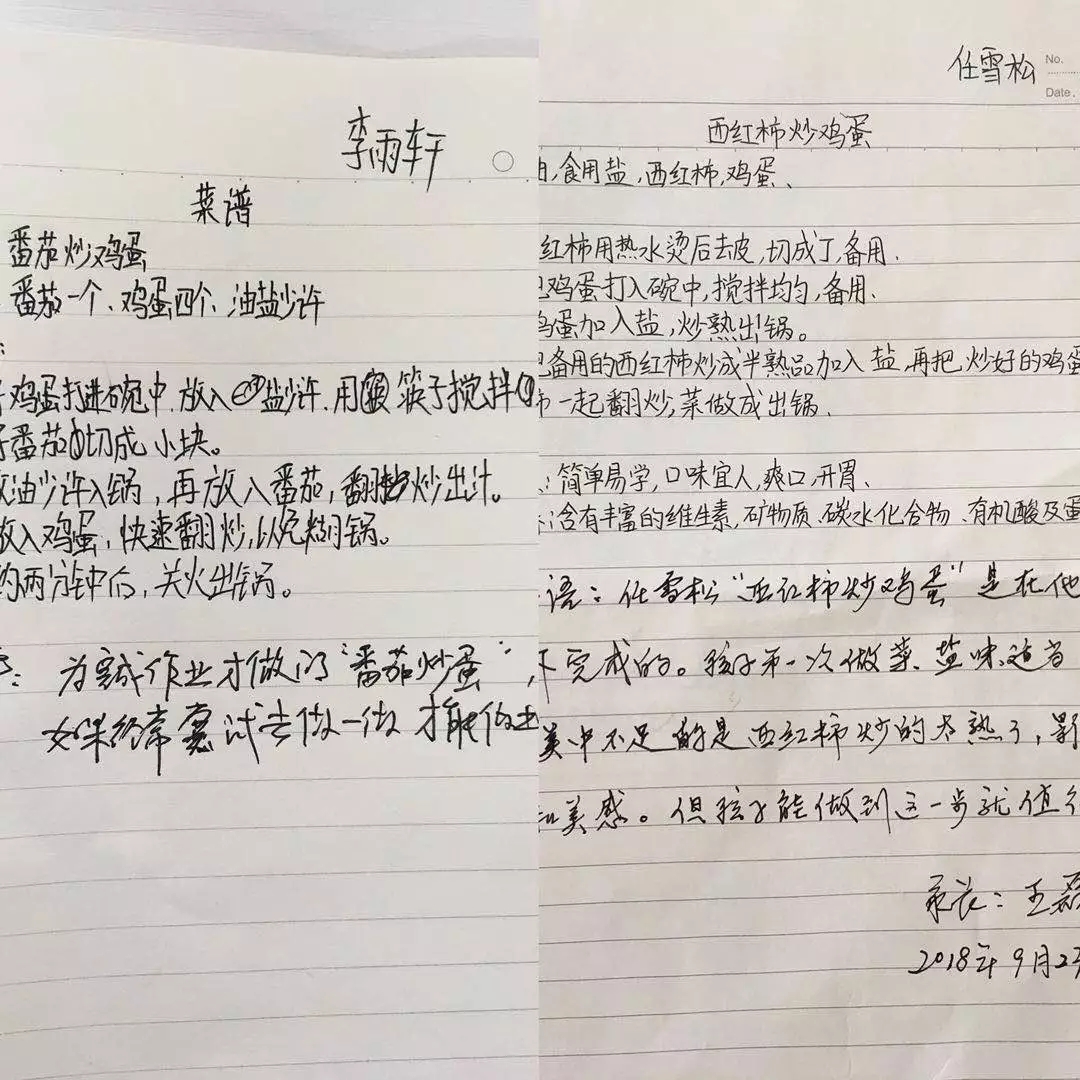 李雨轩
菜谱
番茄炒鸡蛋
番茄一个、鸡蛋四个、油盐少许
:
鸡蛋打进碗中.放入盐少许.用筷子搅拌
番茄切成小块。
油少许入锅,再放入番茄,翻炒出汁。
放入鸡蛋,快速翻炒,以免糊锅。
约两分钟后,关火出锅。
: 为完成作业才做的“番茄炒蛋”,
如果经常尝试去做一做 才能做出
任雪松
No.
Date.
西红柿炒鸡蛋
,食用盐,西红柿,鸡蛋、
红柿用热水烫后去皮,切成丁,备用.
鸡蛋打入碗中,搅拌均匀,备用.
鸡蛋加入盐,炒熟出锅。
备用的西红柿炒成半熟品加入盐,再把炒好的鸡蛋
一起翻炒,菜做成出锅.
:简单易学,口味宜人,爽口,开胃、
:含有丰富的维生素,矿物质、碳水化合物、有机酸及蛋
语:任雪松“西红柿炒鸡蛋”是在他
下完成的。孩子第一次做菜、盐味适当
美中不足的是西红柿炒的太熟了,影
和美感。但孩子能做到这一步就值得
家长:王磊
2018年9月27